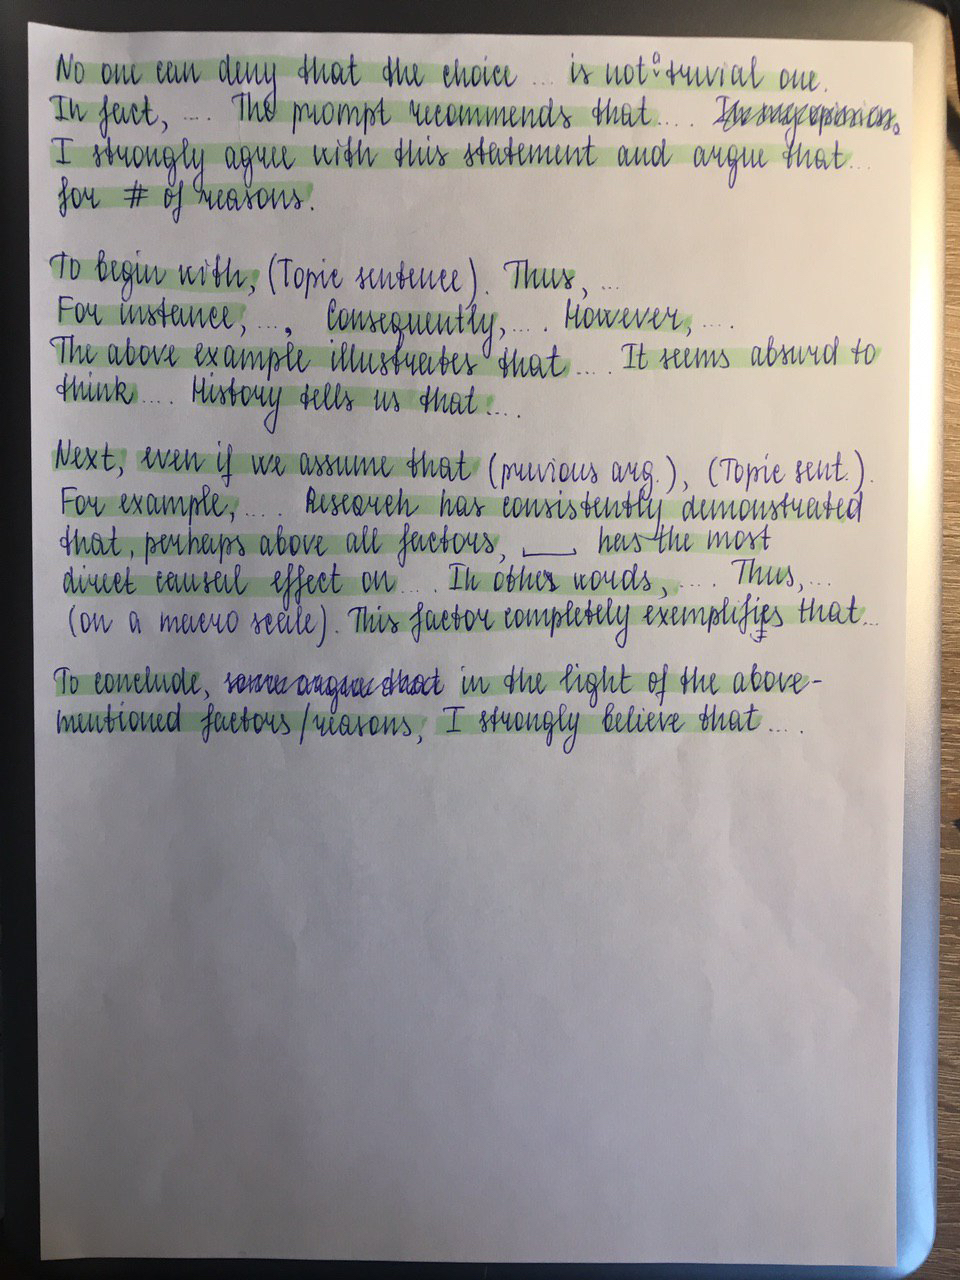 No one can deny that the choice ... is not a trivial one.
In fact, .... The prompt recommends that.... In my opinion,
I strongly agree with this statement and argue that...
for # of reasons.
To begin with, (Topic sentence). Thus, ...
For instance, ..., Consequently, .... However, ....
The above example illustrates that .... It seems absurd to
think .... History tells us that ....
Next, even if we assume that (previous arg.), (Topic sent.).
For example, .... Research has consistently demonstrated
that, perhaps above all factors, ___ has the most
direct causal effect on .... In other words, .... Thus, ...
(on a macro scale). This factor completely exemplifies that ...
To conclude, some argue that in the light of the above-
mentioned factors/reasons, I strongly believe that ....